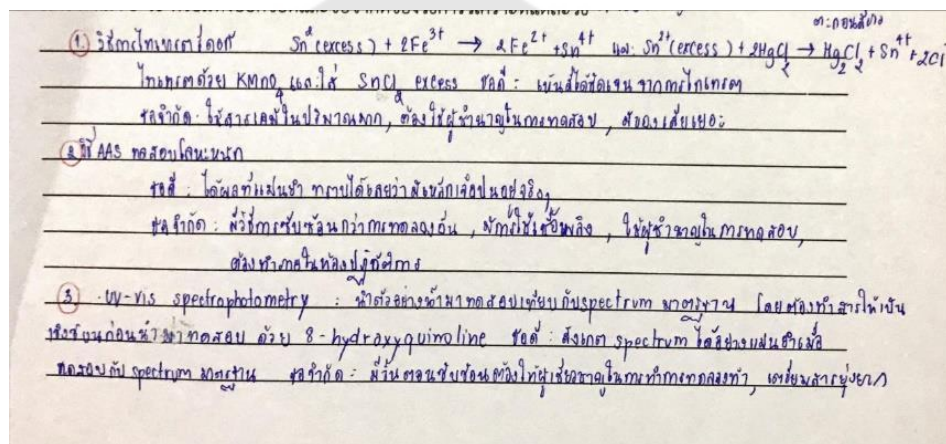 ตะกอนสีขาว
① วิธีการไทเทรตรีดอกซ์ Sn²⁺(excess) + 2Fe³⁺ → 2Fe²⁺ + Sn⁴⁺ และ Sn²⁺(excess) + 2HgCl₂ → Hg₂Cl₂ + Sn⁴⁺ + 2Cl
ไทเทรตด้วย KMnO₄ และใส่ SnCl₂ excess ข้อดี : เห็นสีได้ชัดเจน จากการไทเทรต
ข้อจำกัด : ใช้สารเคมีในปริมาณมาก, ต้องใช้ผู้ชำนาญในการทดสอบ,
② วิธี AAS ทดสอบโลหะหนัก
ข้อดี : ได้ผลที่แม่นยำ ทราบได้เลยว่ามีเหล็กเจือปนอยู่จริงๆ
ข้อจำกัด : มีวิธีการซับซ้อนกว่าการทดลองอื่น, มีการใช้เชื้อเพลิง, ใช้ผู้ชำนาญในการทดสอบ,
ต้องทำภายในห้องปฏิบัติการ
③ UV-vis spectrophotometry : นำตัวอย่างน้ำมาทดสอบเทียบกับ spectrum มาตรฐาน โดยต้องทำสารให้เป็น
เชิงซ้อนก่อนนำมาทดสอบ ด้วย 8-hydroxyquinoline ข้อดี : สังเกต spectrum ได้อย่างแม่นยำเมื่อ
ทดสอบกับ spectrum มาตรฐาน ข้อจำกัด : มีขั้นตอนซับซ้อนต้องให้ผู้เชี่ยวชาญในการทำการทดลองทำ, เตรียมสารยุ่งยาก